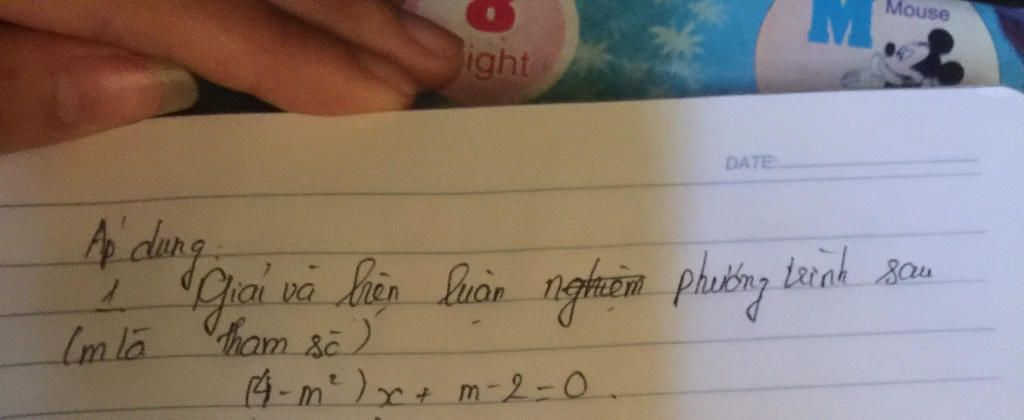 8
ight
M
Mouse
DATE:
Áp dụng:
1 Giải và biện luận nghiệm phương trình sau
(m là tham số)
(4-m²)x + m-2=0.